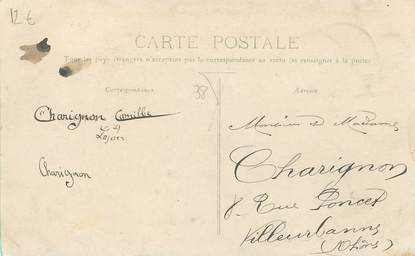 12€
CARTE POSTALE
Tous les pays étrangers n'acceptent pas la correspondance au recto (se renseigner à la poste)
Correspondance
38
Adresse
Charignon Camille
Charignon
Monsieur et Madame
Charignon
8 Rue Poncet
Villeurbanne
(Rhône)